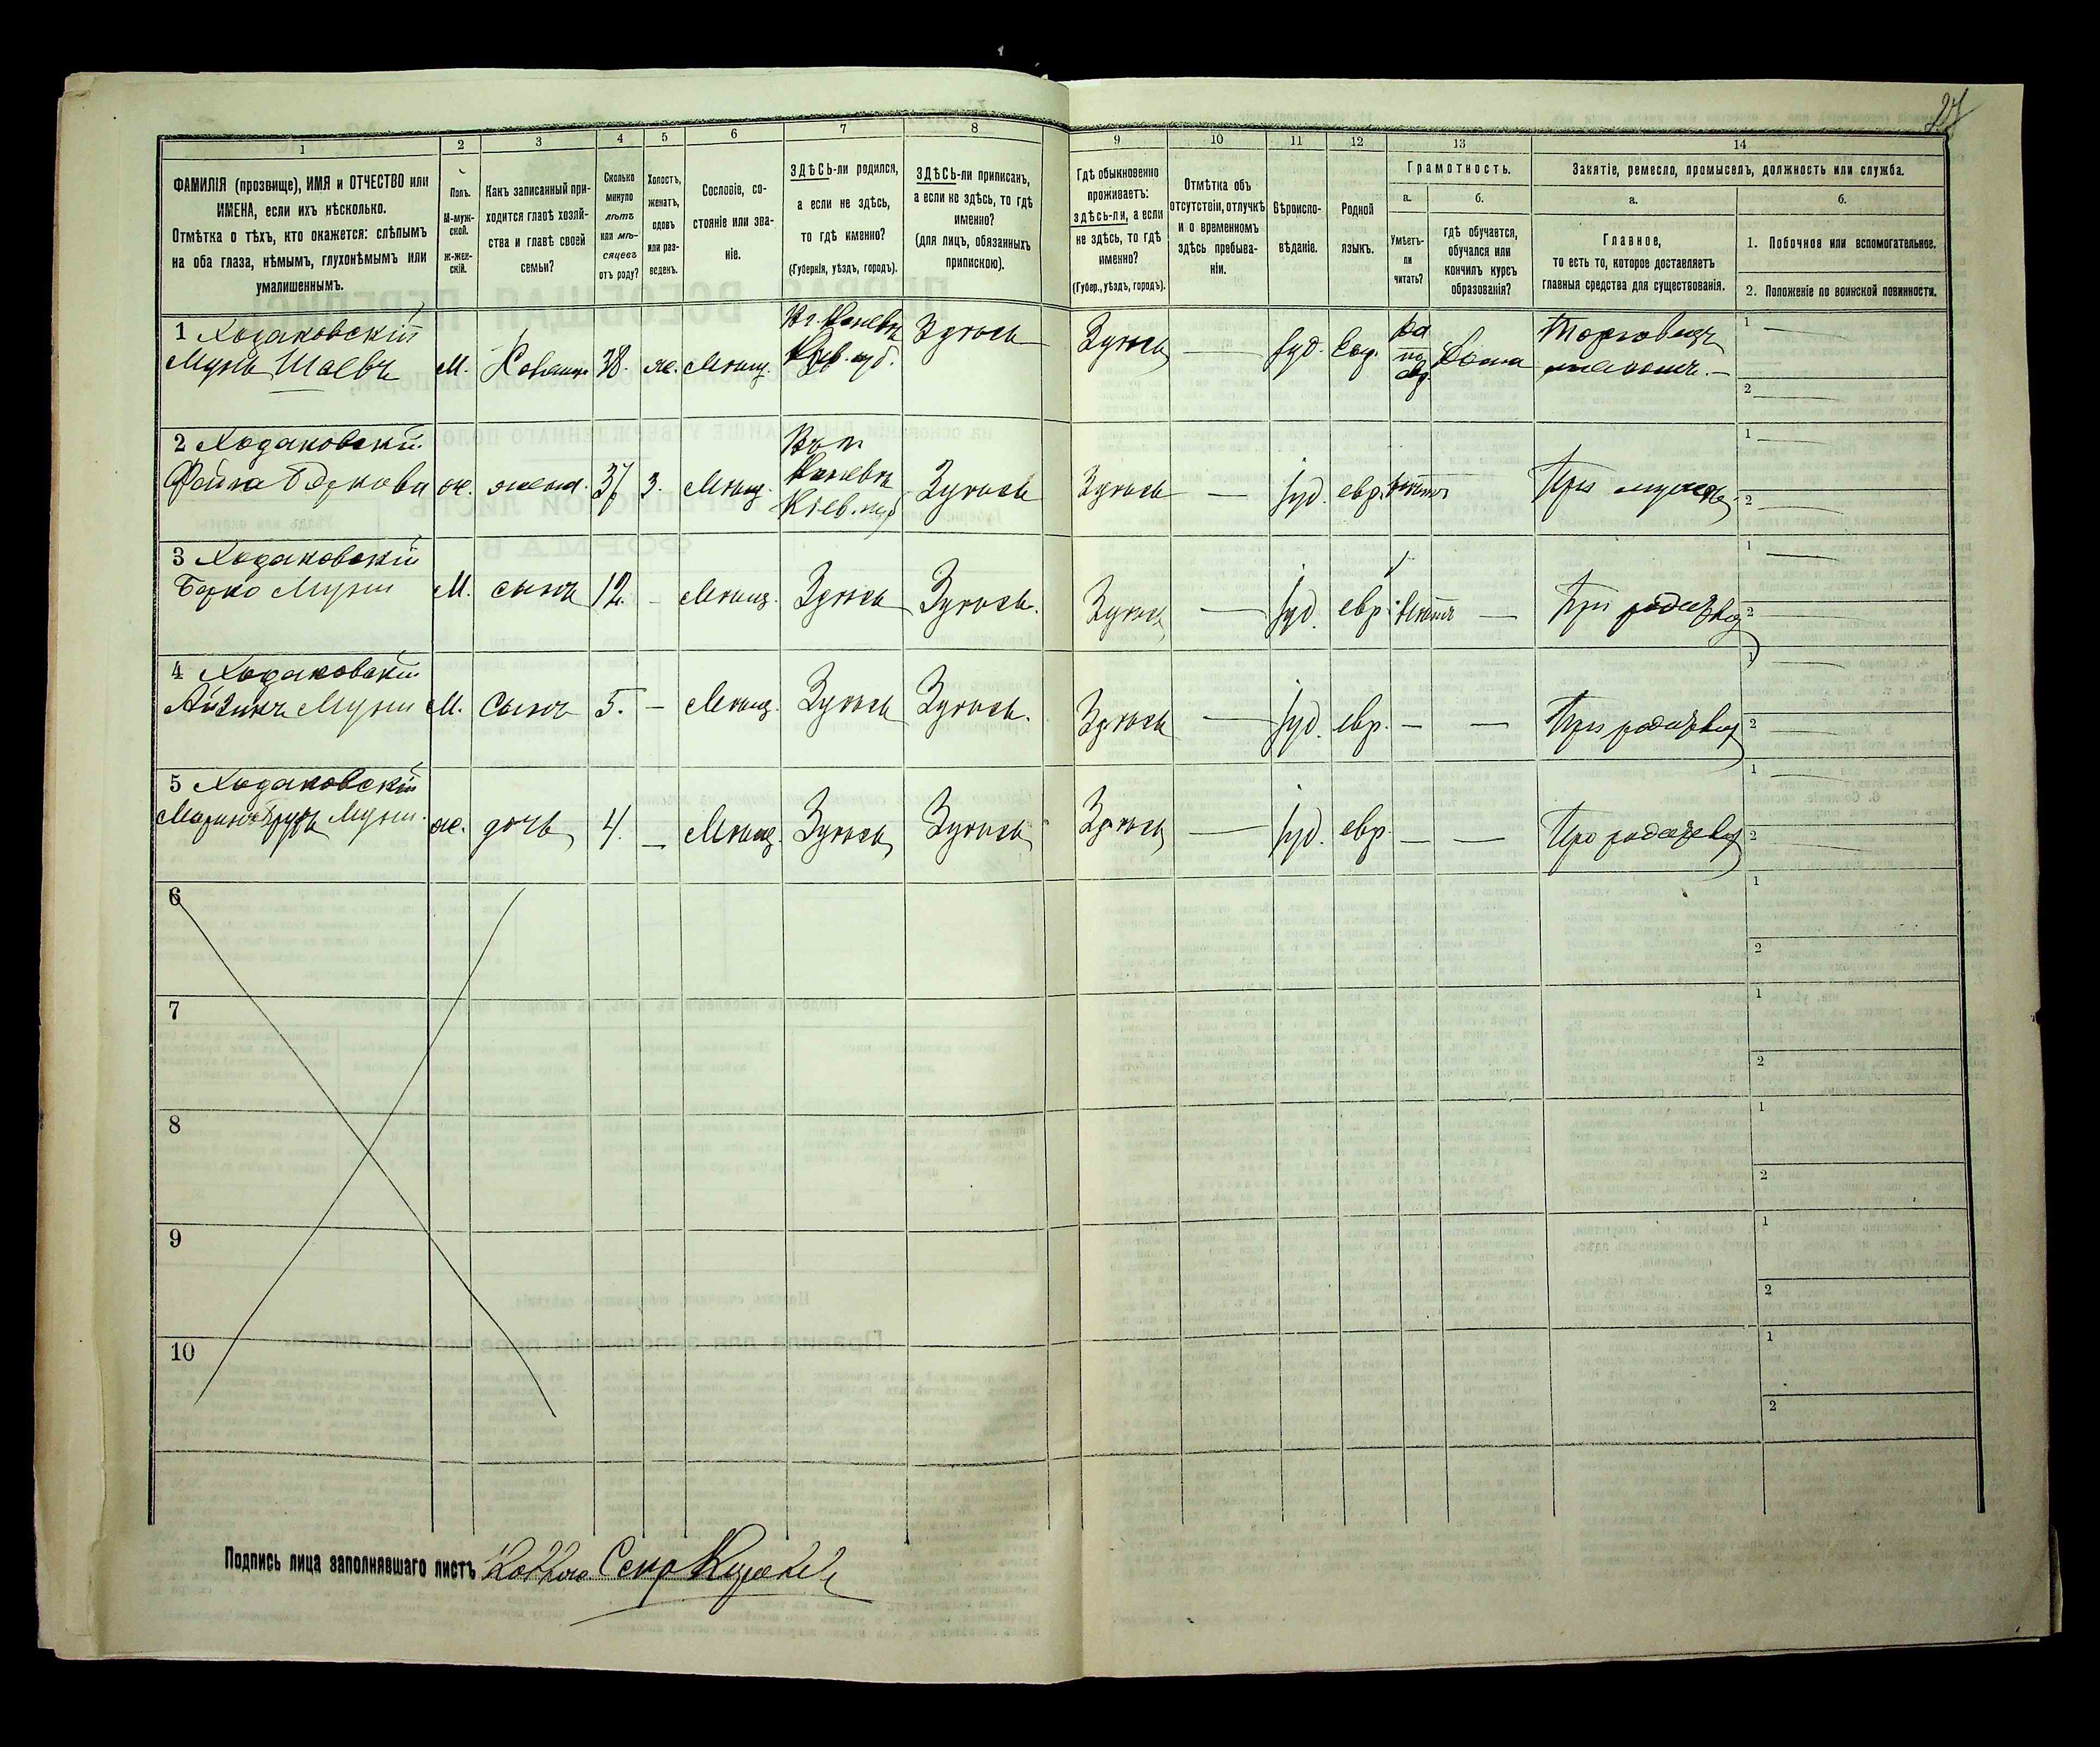 27
1 2 3 4 5 6 7 8 9 10 11 12 13 14
ФАМИЛІЯ (прозвище), ИМЯ и ОТЧЕСТВО или
ИМЕНА, если ихъ нѣсколько.
Отмѣтка о тѣхъ, кто окажется: слѣпымъ
на оба глаза, нѣмымъ, глухонѣмымъ или
умалишеннымъ.
Полъ.
М-муж-
ской.
Ж-жен-
скій.
Какъ записанный при-
ходится главѣ хозяй-
ства и главѣ своей
семьи?
Сколько
минуло
лѣтъ
или мѣ-
сяцевъ
отъ роду?
Холостъ,
женатъ,
вдовъ
или раз-
веденъ.
Сословіе, со-
стояніе или зва-
ніе.
ЗДѢСЬ-ли родился,
а если не здѣсь,
то гдѣ именно?
(Губернія, уѣздъ, городъ).
ЗДѢСЬ-ли приписанъ,
а если не здѣсь, то гдѣ
именно?
(для лицъ, обязанныхъ
припискою).
Гдѣ обыкновенно
проживаетъ:
здѣсь-ли, а если
не здѣсь, то гдѣ
именно?
(Губер., уѣздъ, городъ).
Отмѣтка объ
отсутствіи, отлучкѣ
и о временномъ
здѣсь пребыва-
ніи.
Вѣроиспо-
вѣданіе.
Родной
языкъ.
Грамотность.
а.
Умѣетъ-
ли
читать?
б.
гдѣ обучается,
обучался или
кончилъ курсъ
образованія?
Занятіе, ремесло, промыселъ, должность или служба.
а.
Главное,
то есть то, которое доставляетъ
главныя средства для существованія.
б.
1. Побочное или вспомогательное.
2. Положеніе по воинской повинности.
1 Ходаковскій
Мунь Шаевъ М. Хозяинъ 38. ж. Мѣщ.
Кіев. губ.
Здѣсь Здѣсь — Іуд. Евр.
да
по
евр.
Дома
Торговецъ
1 —
2 —
2 Ходаковскій
Фейга Беркова ж. жена. 37 З. Мѣщ.
Каневъ
Кіев. губ.
Здѣсь Здѣсь — Іуд. евр. нѣтъ При мужѣ
1 —
2 —
3 Ходаковскій
Берко Муни М. сынъ 12. — Мѣщ. Здѣсь Здѣсь. Здѣсь — Іуд. евр. нѣтъ — При родителях
1 —
2 —
4 Ходаковскій
Айзикъ Муни М. Сынъ 5. — Мѣщ. Здѣсь Здѣсь. Здѣсь — Іуд. евр. — — При родителях
1 —
2 —
5 Ходаковскій
Муни. ж. дочь 4. — Мѣщ. Здѣсь Здѣсь Здѣсь — Іуд. евр. — — При родителях
1 —
2 —
6 1
2
7 1
2
8 1
2
9 1
2
10 1
2
Подпись лица заполнявшаго листъ